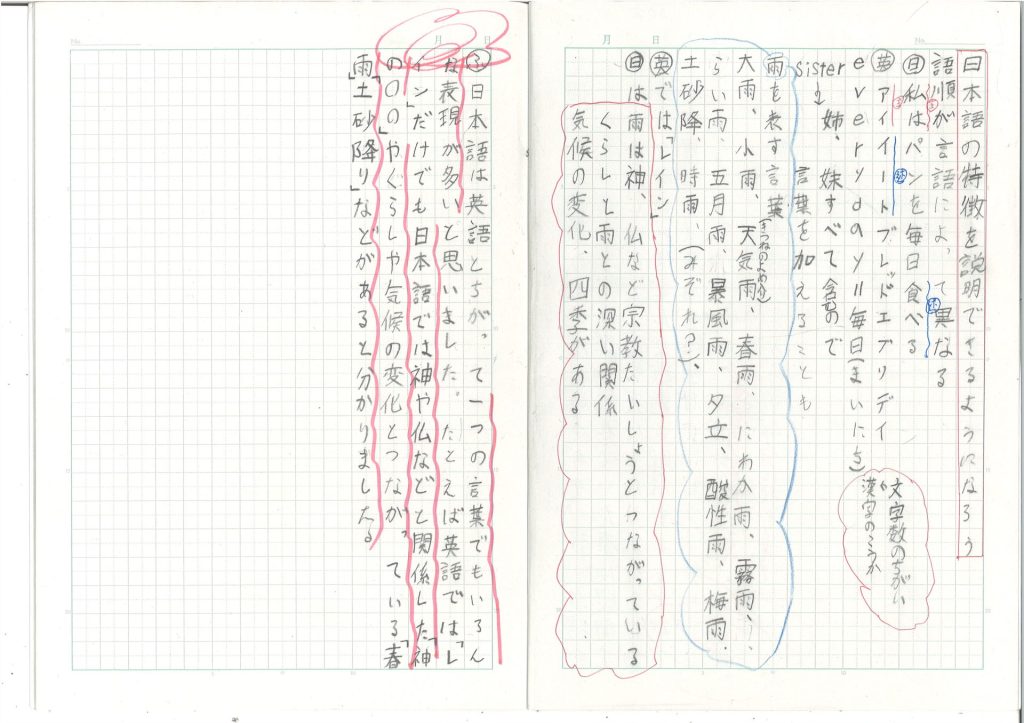 月 日
No.
日本語の特徴を説明できるようになろう
語順が言語によって異なる
主
結
日 私はパンを毎日食べる
主
結
英 アイイートブレッドエブリデイ
everyday=毎日(まいにち)
文字数のちがい
漢字のこうか
sister
↓
姉、妹すべて含むので
言葉を加えることも
雨を表す言葉
大雨、小雨、天気雨、春雨、にわか雨、霧雨、
(きつねのよめ入り)
らい雨、五月雨、暴風雨、夕立、酸性雨、梅雨、
土砂降、時雨、(みぞれ?)、
英では「レイン」
日は雨は神、仏など宗教たいしょうとつながっている
くらしと雨との深い関係
気候の変化、四季がある
No.
月 日
ふ 日本語は英語とちがって一つの言葉でもいろん
な表現が多いと思いました。たとえば英語では「レ
イン」だけでも日本語では神や仏などと関係した「神
の〇〇」やくらしや気候の変化とつながっている「春
雨」「土砂降り」などがあると分かりました。